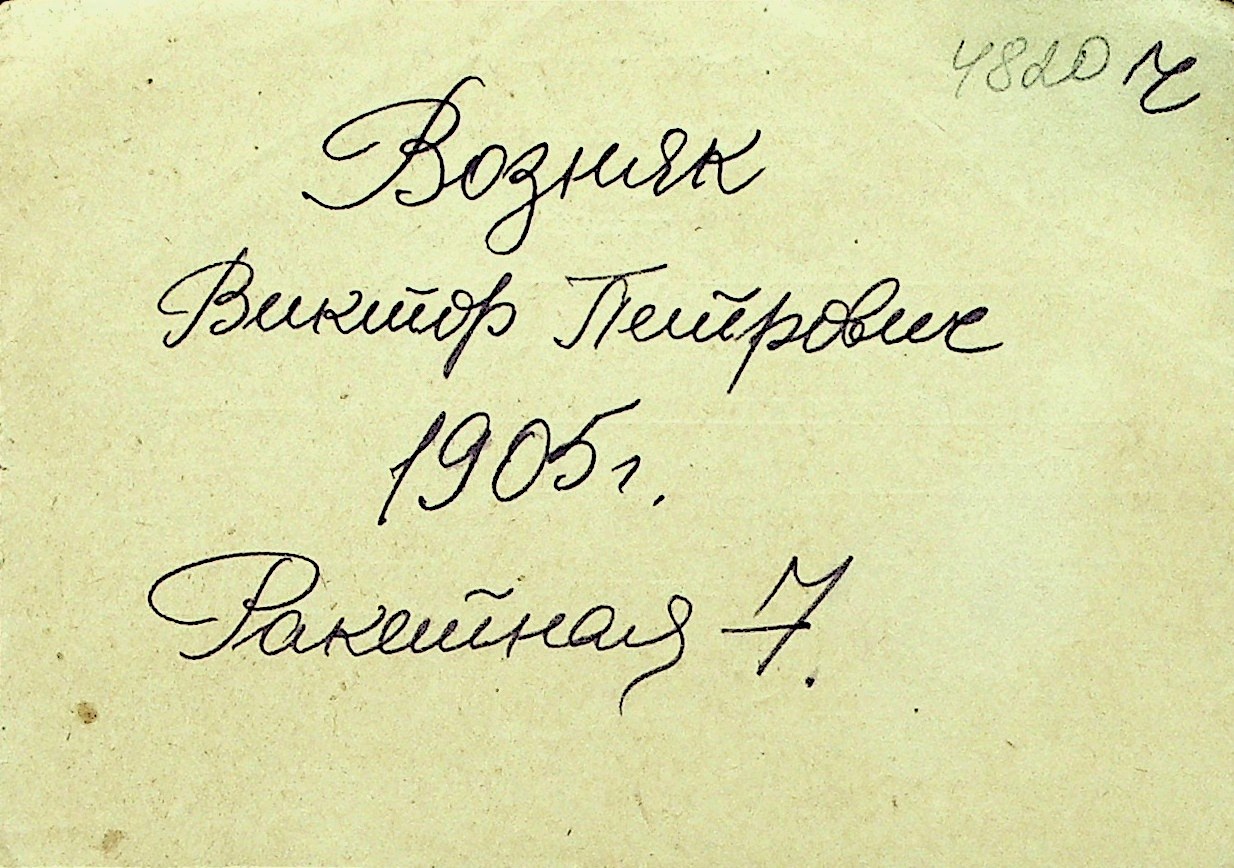 4820 ч
Возняк
Виктор Петрович
1905 г.
Ракетная 7.